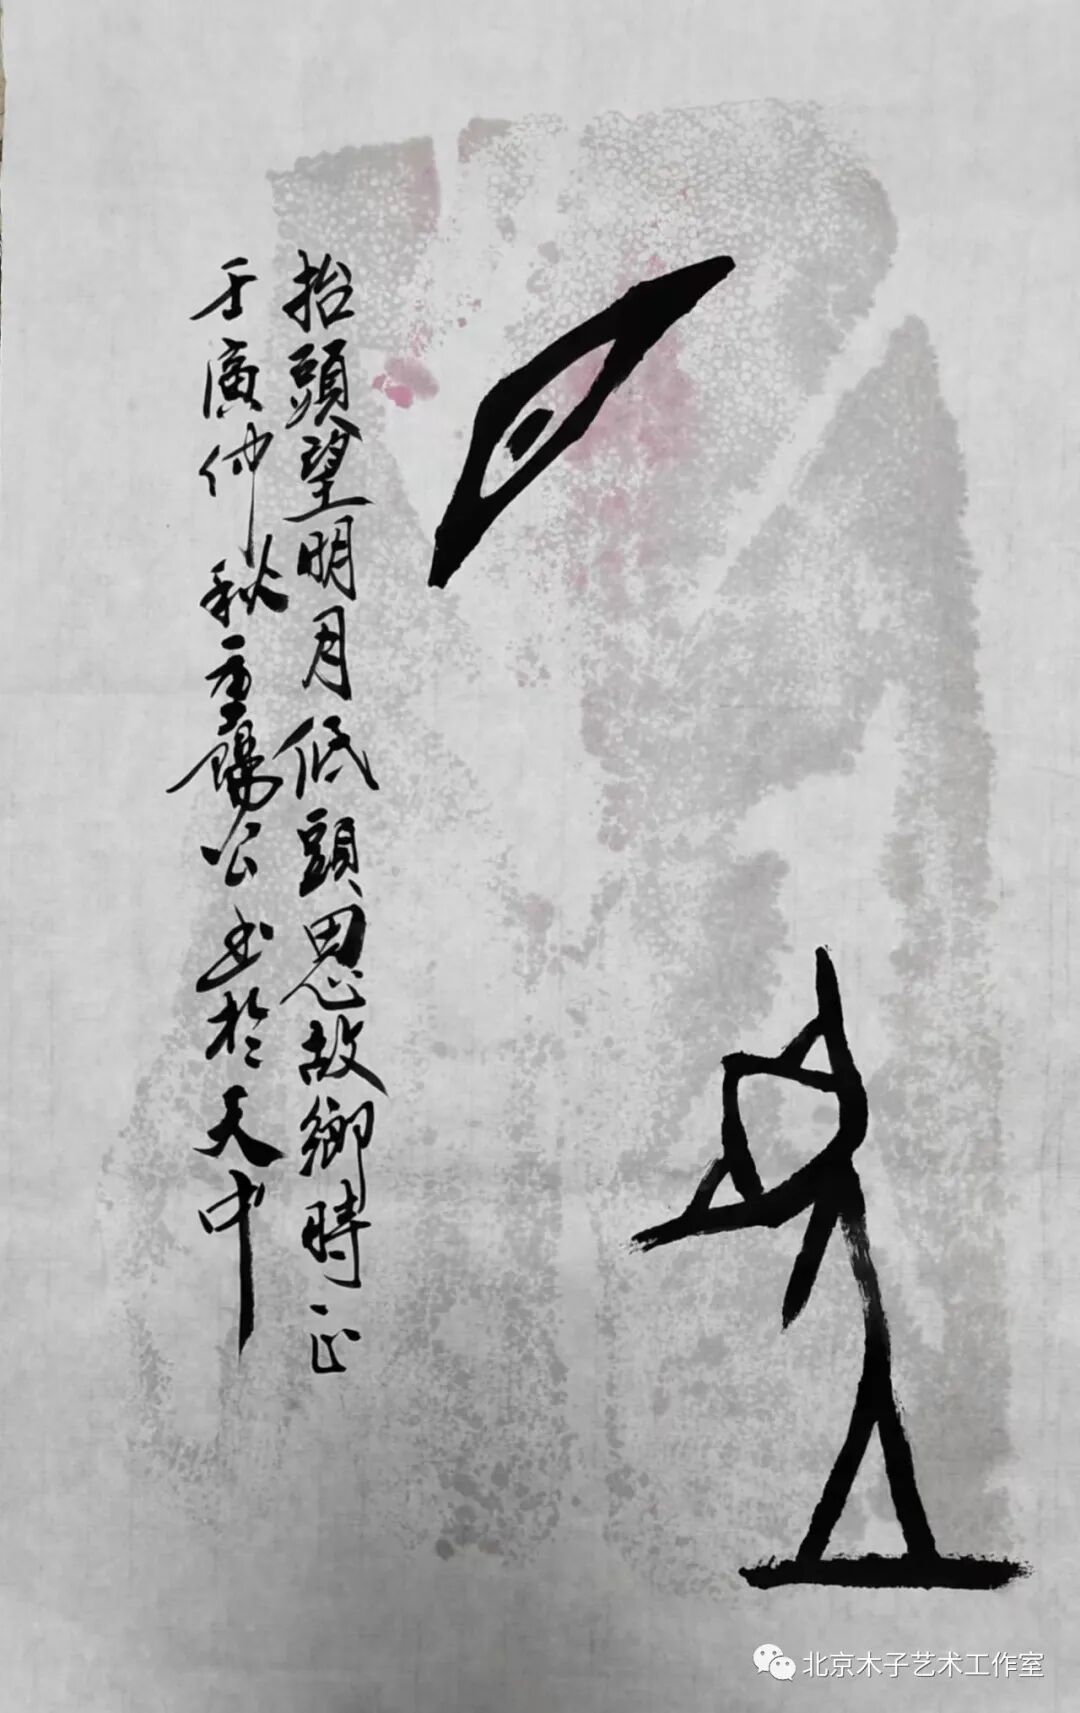 抬頭望明月低頭思故鄉時正
壬寅仲秋重陽公書於天中
北京木子艺术工作室